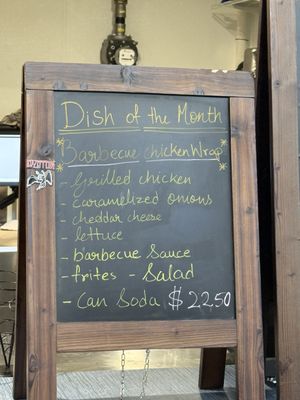 Dish of the Month
Barbecue chicken Wrap
- Grilled chicken
- caramelized onions
- cheddar cheese
- lettuce
- barbecue Sauce
- frites - Salad
- Can Soda $ 22.50